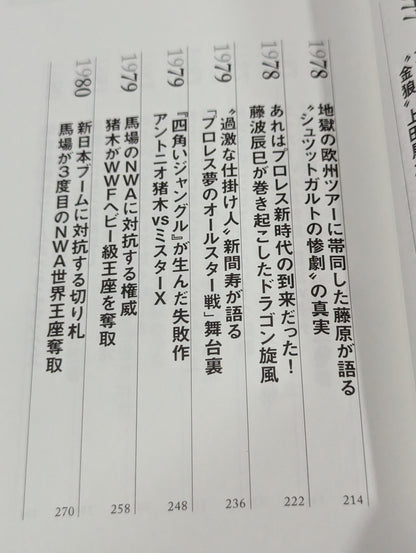 〝金狼〟上田
1978
地獄の欧州ツアーに帯同した藤原が語る
〝シュツットガルトの惨劇〟の真実
214
1978
あれはプロレス新時代の到来だった！
藤波辰巳が巻き起こしたドラゴン旋風
222
1979
〝過激な仕掛け人〟新間寿が語る
「プロレス夢のオールスター戦」舞台裏
236
1979
『四角いジャングル』が生んだ失敗作
アントニオ猪木vsミスターX
248
1979
馬場のNWAに対抗する権威
猪木がWWFヘビー級王座を奪取
258
1980
新日本ブームに対抗する切り札
馬場が3度目のNWA世界王座奪取
270